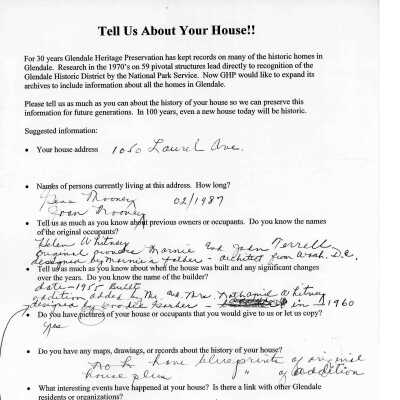 Tell Us About Your House!!
For 30 years Glendale Heritage Preservation has kept records on many of the historic homes in
Glendale. Research in the 1970's on 59 pivotal structures lead directly to recognition of the
Glendale Historic District by the National Park Service. Now GHP would like to expand its
archives to include information about all the homes in Glendale.
Please tell us as much as you can about the history of your house so we can preserve this
information for future generations. In 100 years, even a new house today will be historic.
Suggested information:
• Your house address 1050 Laurel Ave.
• Names of persons currently living at this address. How long?
Gene Mooney 02/1987
Joan Mooney
• Tell us as much as you know about previous owners or occupants. Do you know the names
of the original occupants?
Helen Whitney
original owners Marnie and John Terrell
designed by Marnie's father - architect from Wash, D.C.
• Tell us as much as you know about when the house was built and any significant changes
over the years. Do you know the name of the builder?
date - 1955 Built
addition added by Mr. and Mrs. Nathaniel Whitney
designed by Goodie in 1960
• Do you have pictures of your house or occupants that you would give to us or let us copy?
yes
• Do you have any maps, drawings, or records about the history of your house?
no have blueprints of original
house plus " of addition
• What interesting events have happened at your house? Is there a link with other Glendale
residents or organizations?